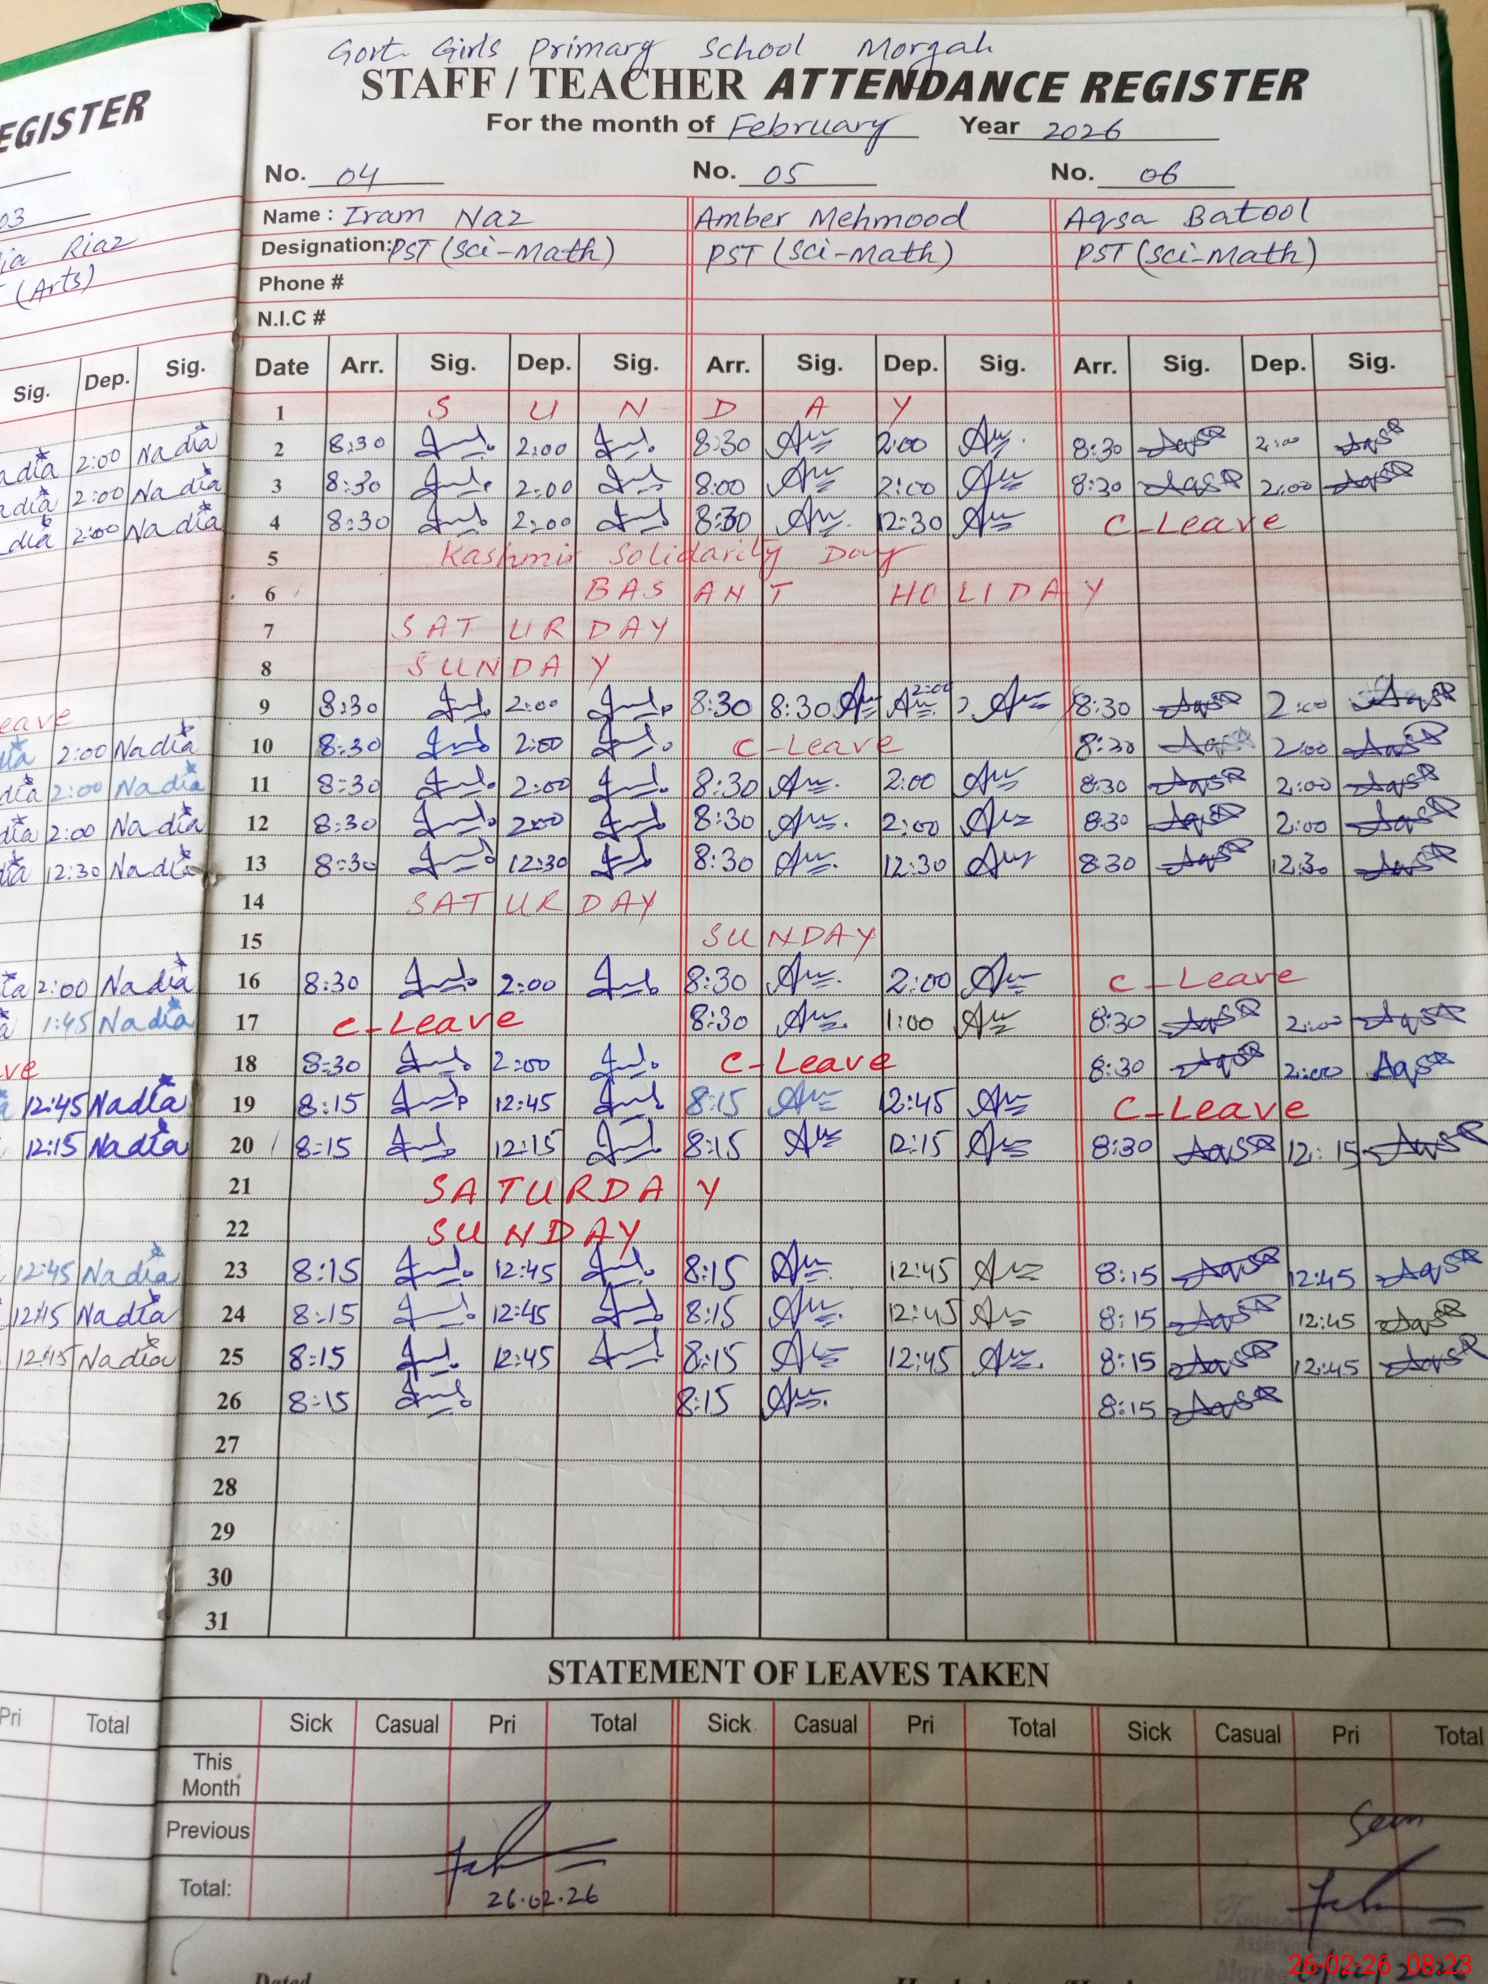 Govt. Girls Primary School Morgah
STAFF / TEACHER ATTENDANCE REGISTER
EGISTER
For the month of February Year 2026
No. 04 No. 05 No. 06
03
Name : Iram Naz Amber Mehmood Aqsa Batool
ia Riaz
Designation: PST (Sci-Math) PST (Sci-Math) PST (Sci-Math)
(Arts)
Phone #
N.I.C #
Sig. Dep. Sig. Date Arr. Sig. Dep. Sig. Arr. Sig. Dep. Sig. Arr. Sig. Dep. Sig.
1 SUNDAY
adia 2:00 Nadia 2 8:30 2:00 8:30 2:00 8:30 Aqsa 2:00 Aqsa
adia 2:00 Nadia 3 8:30 2:00 8:00 2:00 8:30 Aqsa 2:00 Aqsa
dia 2:00 Nadia 4 8:30 2:00 8:30 12:30 C-Leave
5 Kashmir Solidarity Day
6 BASANT HOLIDAY
7 SATURDAY
8 SUNDAY
eave 9 8:30 2:00 8:30 8:30 2:00 8:30 Aqsa 2:00 Aqsa
dia 2:00 Nadia 10 8:30 2:00 C-Leave 8:30 Aqsa 2:00 Aqsa
dia 2:00 Nadia 11 8:30 2:00 8:30 2:00 8:30 Aqsa 2:00 Aqsa
dia 2:00 Nadia 12 8:30 2:00 8:30 2:00 8:30 Aqsa 2:00 Aqsa
dia 12:30 Nadia 13 8:30 12:30 8:30 12:30 8:30 Aqsa 12:30 Aqsa
14 SATURDAY
15 SUNDAY
ia 2:00 Nadia 16 8:30 2:00 8:30 2:00 C-Leave
a 1:45 Nadia 17 C-Leave 8:30 1:00 8:30 Aqsa 2:00 Aqsa
ve 18 8:30 2:00 C-Leave 8:30 Aqsa 2:00 Aqsa
a 12:45 Nadia 19 8:15 12:45 8:15 12:45 C-Leave
12:15 Nadia 20 8:15 12:15 8:15 12:15 8:30 Aqsa 12:15 Aqsa
21 SATURDAY
22 SUNDAY
12:45 Nadia 23 8:15 12:45 8:15 12:45 8:15 Aqsa 12:45 Aqsa
12:45 Nadia 24 8:15 12:45 8:15 12:45 8:15 Aqsa 12:45 Aqsa
12:45 Nadia 25 8:15 12:45 8:15 12:45 8:15 Aqsa 12:45 Aqsa
26 8:15 8:15 8:15 Aqsa
27
28
29
30
31
STATEMENT OF LEAVES TAKEN
Pri Total Sick Casual Pri Total Sick Casual Pri Total Sick Casual Pri Total
This Month
Previous
Seen
Total:
26.02.26
26-02-26 08:23
Dated